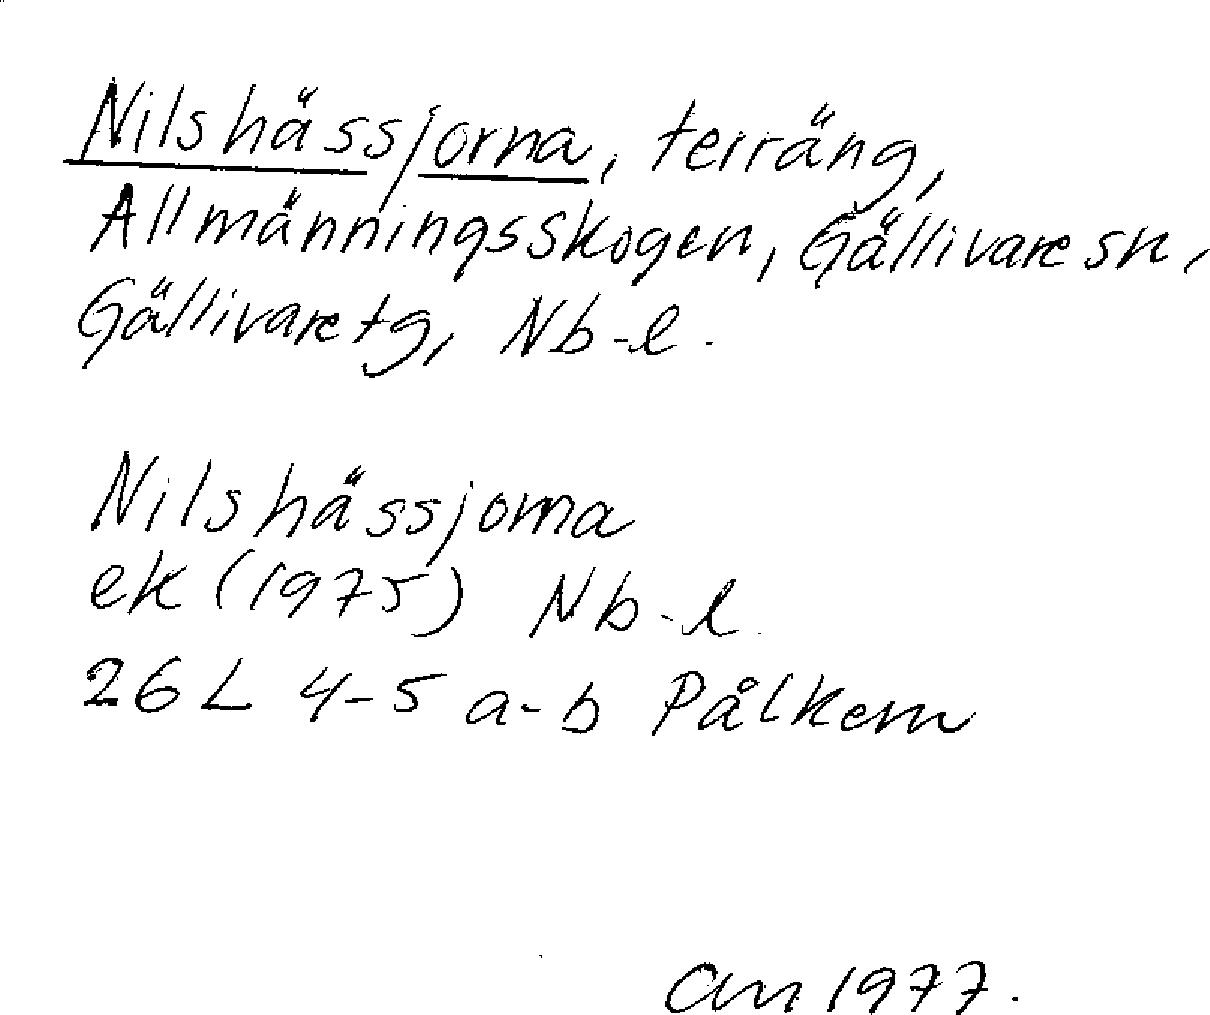 Nilshässjorna, terräng,
Allmänningsskogen, Gällivare sn,
Gällivare tg, Nb-l.
Nilshässjorna
ek (1975) Nb-l.
26 L 4-5 a-b Pålkem
1977.